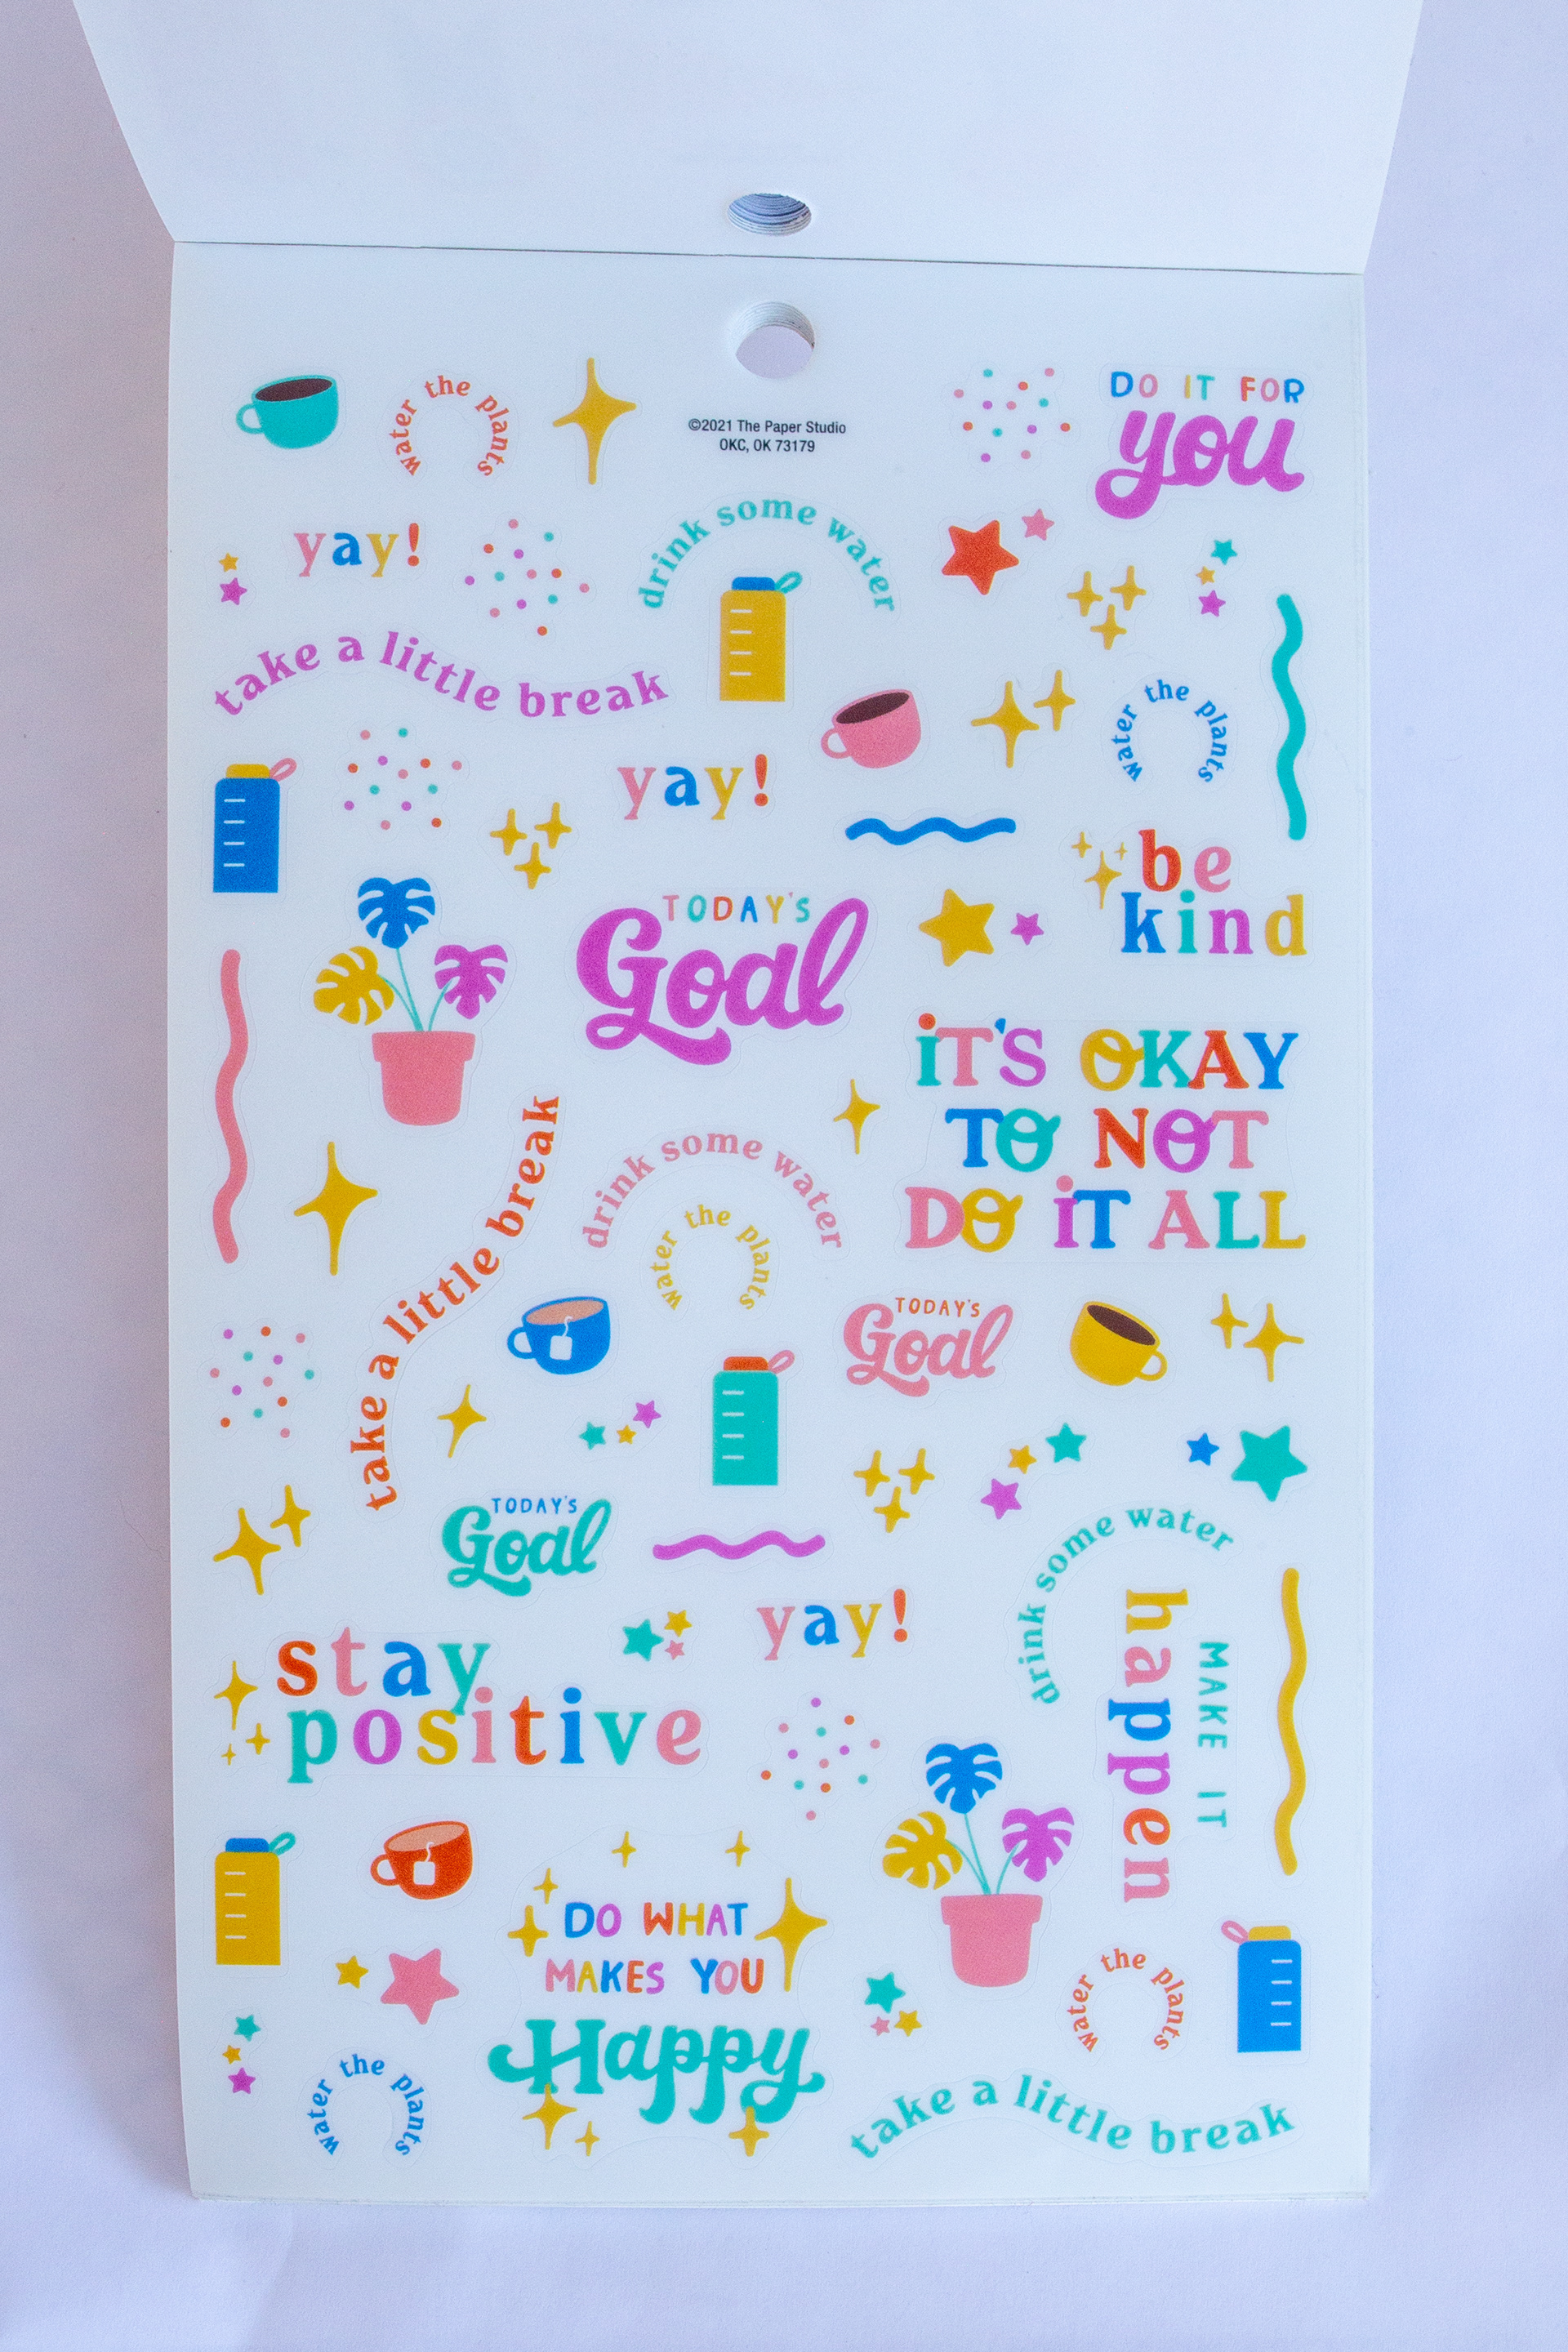 water the plants
©2021 The Paper Studio
OKC, OK 73179
DO IT FOR
you
yay!
drink some water
take a little break
water the plants
yay!
be
kind
TODAY'S
Goal
iT'S OKAY
TO NOT
DO iT ALL
take a little break
drink some water
water the plants
TODAY'S
Goal
TODAY'S
Goal
drink some water
yay!
MAKE IT
happen
stay
positive
DO WHAT
MAKES YOU
Happy
water the plants
water the plants
take a little break